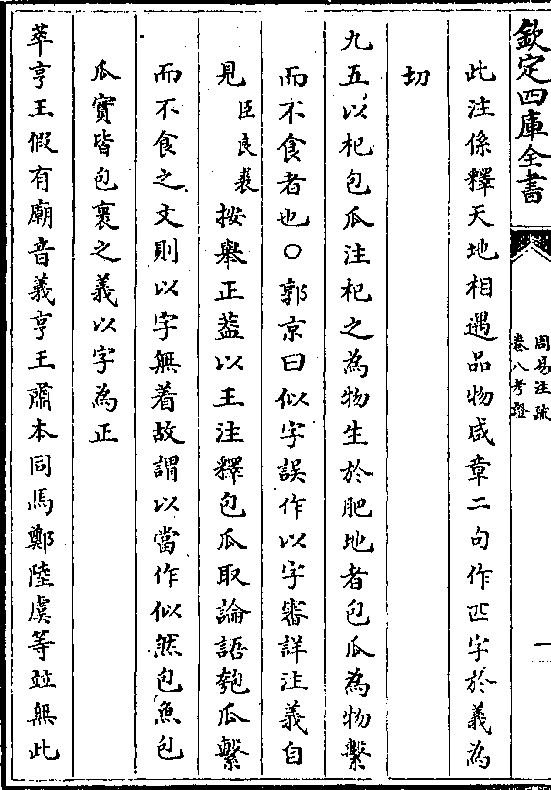 欽定四庫全書
周易注疏
卷八考證
一
此注係釋天地相遇品物咸章二句作匹字於義為
切
九五以杞包瓜注杞之為物生於肥地者包瓜為物繫
而不食者也○郭京曰似字誤作以字審詳注義自
見臣良裘按舉正葢以王注釋包瓜取論語匏瓜繫
而不食之文則以字無着故謂以當作似然包魚包
瓜實皆包裹之義以字為正
萃亨王假有廟音義亨王肅本同馬鄭陸虞等竝無此